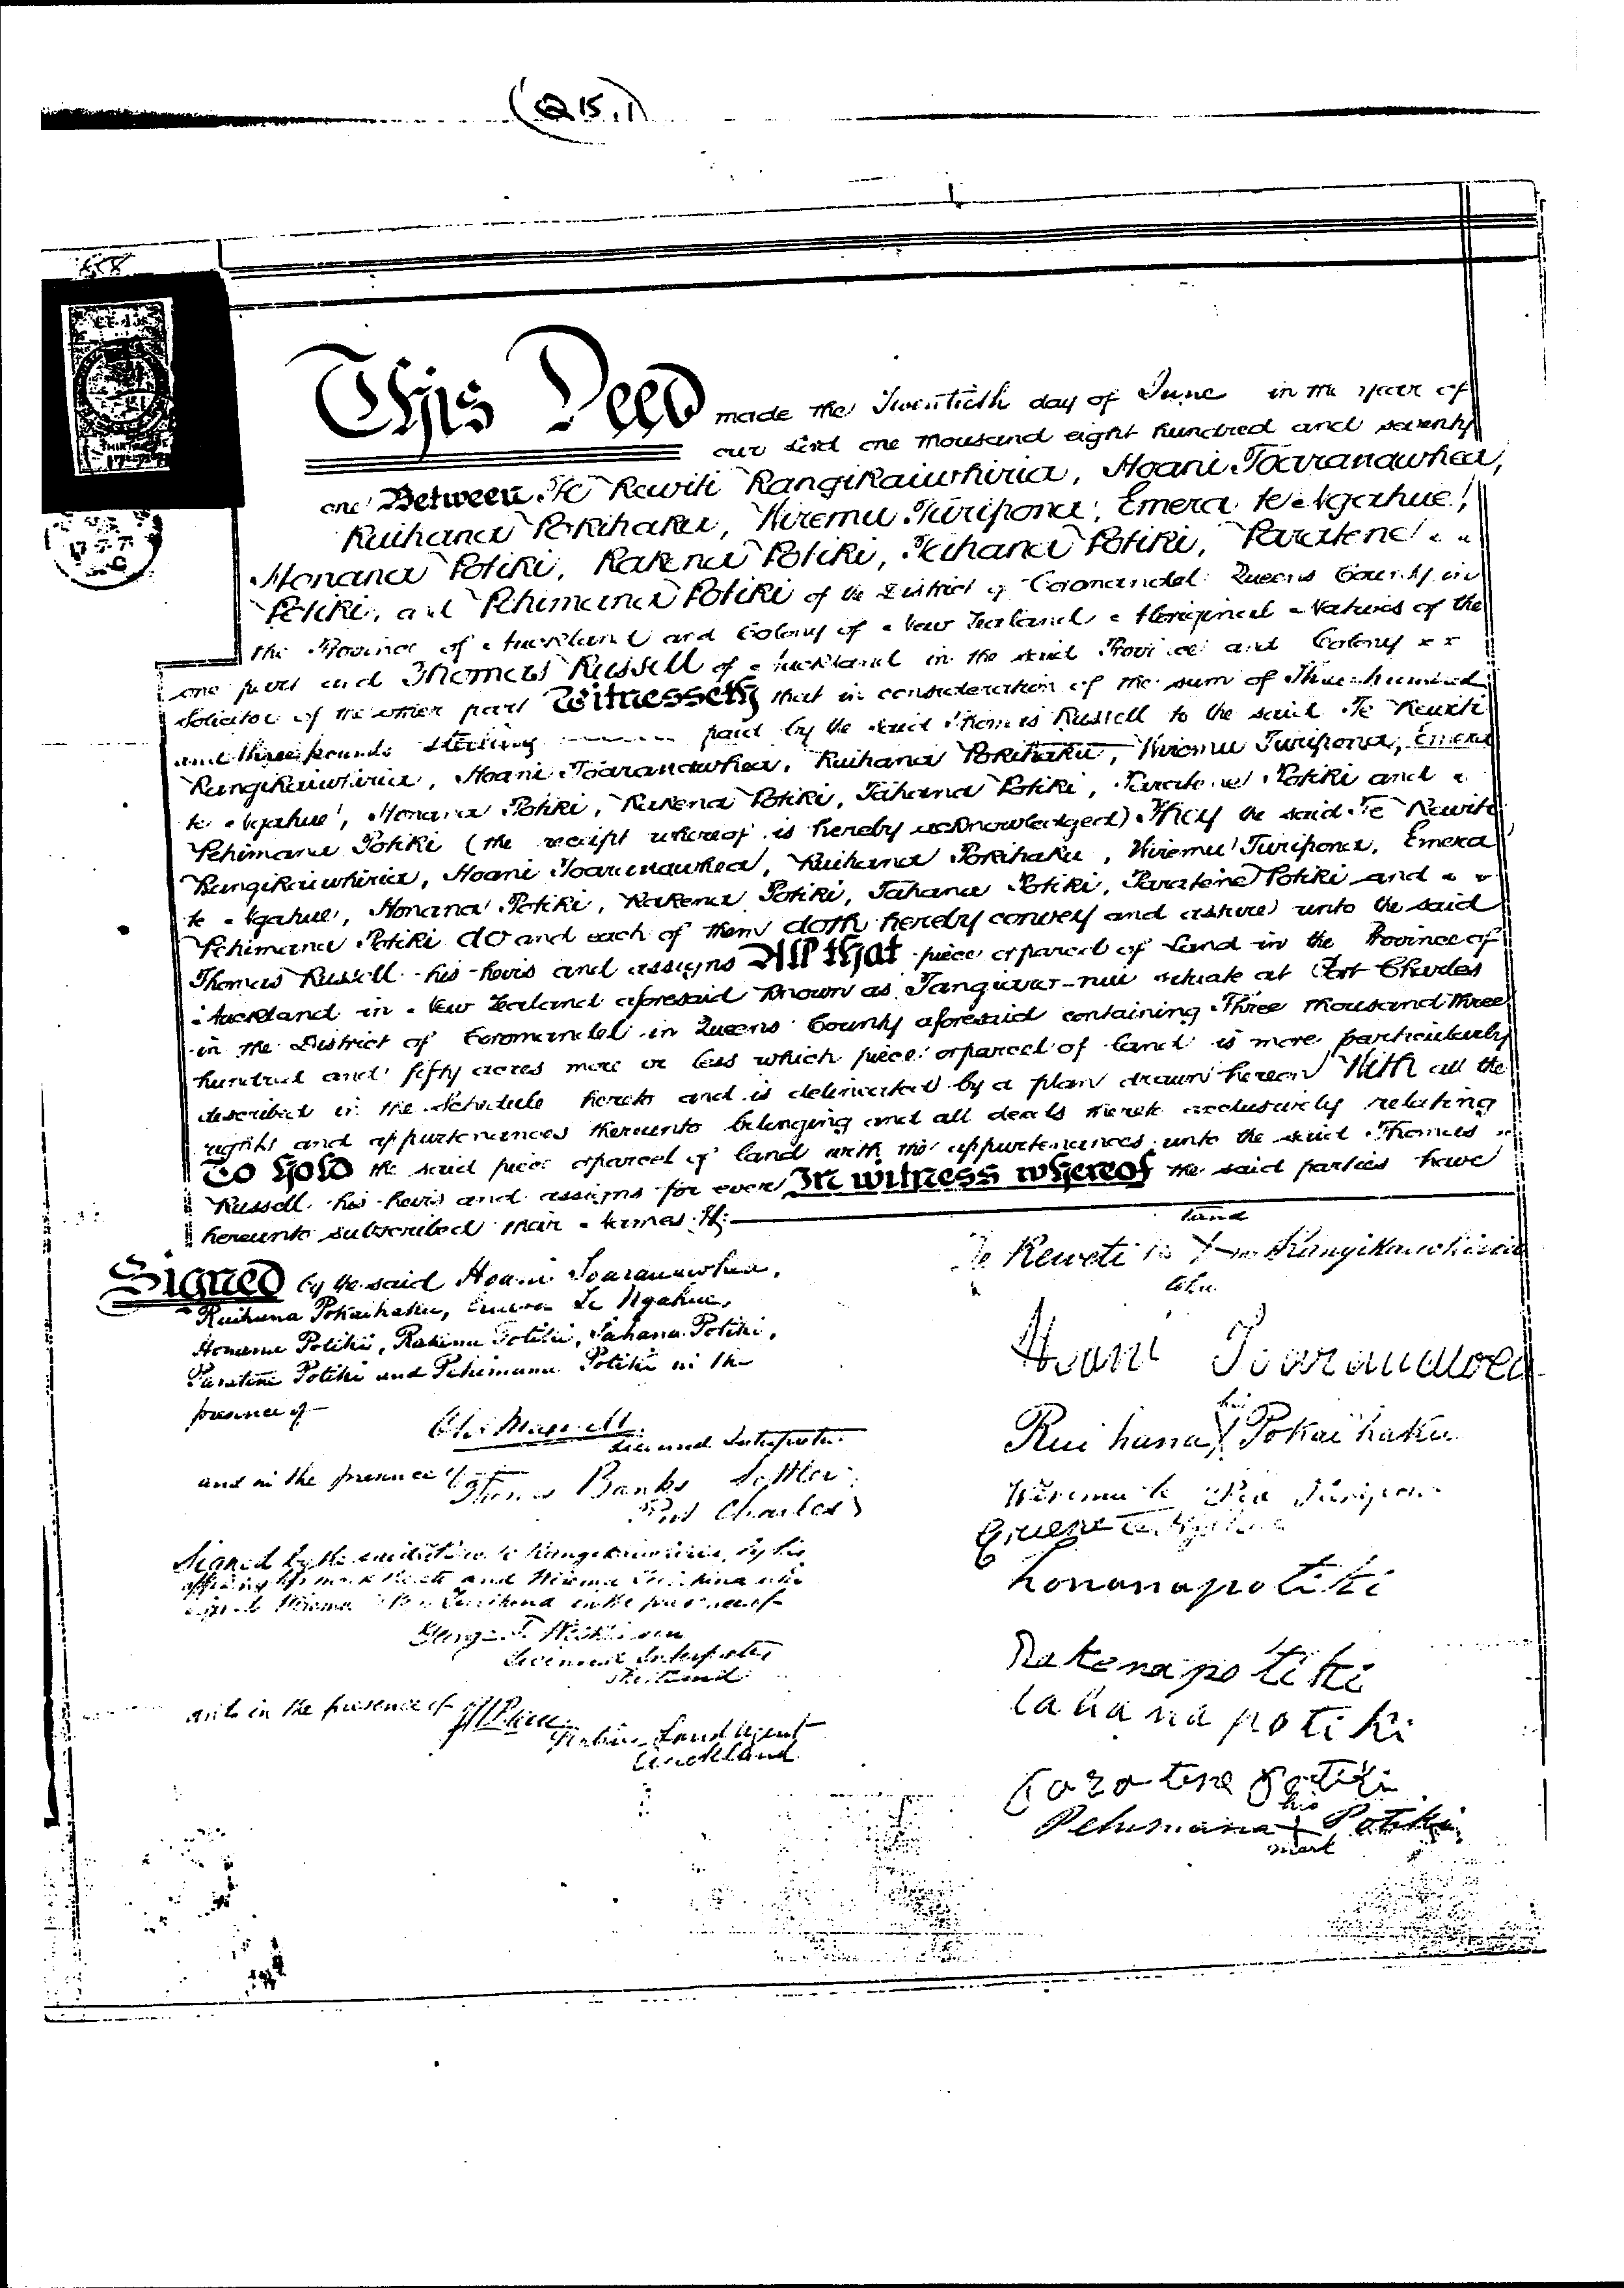 (Q 15.1)
This Deed made the Twentieth day of June in the year of
our Lord one thousand eight hundred and seventy
one Between Te Rewiti Rangikaiwhiria, Hoani Toaranawhea,
Ruihana Pokihaku, Wiremu Turipona, Emera te Ngahue,
Honana Potiki, Rakena Potiki, Tahana Potiki, Paratene
Potiki, and Pehimana Potiki of the District of Coromandel Queens County in
the Province of Auckland and Colony of New Zealand Aboriginal Natives of the
one part and Thomas Russell of Auckland in the said Province and Colony
Solicitor of the other part Witnesseth that in consideration of the sum of Three hundred
and three pounds sterling paid by the said Thomas Russell to the said Te Rewiti
Rangikaiwhiria, Hoani Toaranawhea, Ruihana Pokihaku, Wiremu Turipona, Emera
te Ngahue, Honana Potiki, Rakena Potiki, Tahana Potiki, Paratene Potiki and
Pehimana Potiki (the receipt whereof is hereby acknowledged) They the said Te Rewiti
Rangikaiwhiria, Hoani Toaranawhea, Ruihana Pokihaku, Wiremu Turipona, Emera
te Ngahue, Honana Potiki, Rakena Potiki, Tahana Potiki, Paratene Potiki and
Pehimana Potiki do and each of them doth hereby convey and assure unto the said
Thomas Russell his heirs and assigns All that piece or parcel of Land in the Province of
Auckland in New Zealand aforesaid known as Tangiaro-nui situate at Port Charles
in the District of Coromandel in Queens County aforesaid containing Three thousand three
hundred and fifty acres more or less which piece or parcel of land is more particularly
described in the Schedule hereto and is delineated by a plan drawn hereon With all the
rights and appurtenances thereunto belonging and all deeds thereto exclusively relating
To Hold the said piece or parcel of land with the appurtenances unto the said Thomas
Russell his heirs and assigns for ever In witness whereof the said parties have
hereunto subscribed their names
Signed by the said Hoani Toaranawhea,
Ruihana Pokaihaku, Emera Te Ngahue,
Honana Potiki, Rakena Potiki, Tahana Potiki,
Paratene Potiki and Pehimana Potiki in the
presence of
Licensed Interpreter
and in the presence of Thomas Banks Settler
Port Charles
Signed by the said Rewiti Rangikaiwhiria, by his
affixing his mark thereto and Wiremu
in the presence of
Licensed Interpreter
Shortland
and in the presence of
Native Land Agent
Auckland
Te Reweti X Rangikaiwhiria
tohu
Hoani Toaranawea
his
Ruihana X Pokaihaku
Wiremu te
honanapotiki
Rakenapotiki
tahanapotiki
paratene potiki
his
Pehimana X Potiki
mark